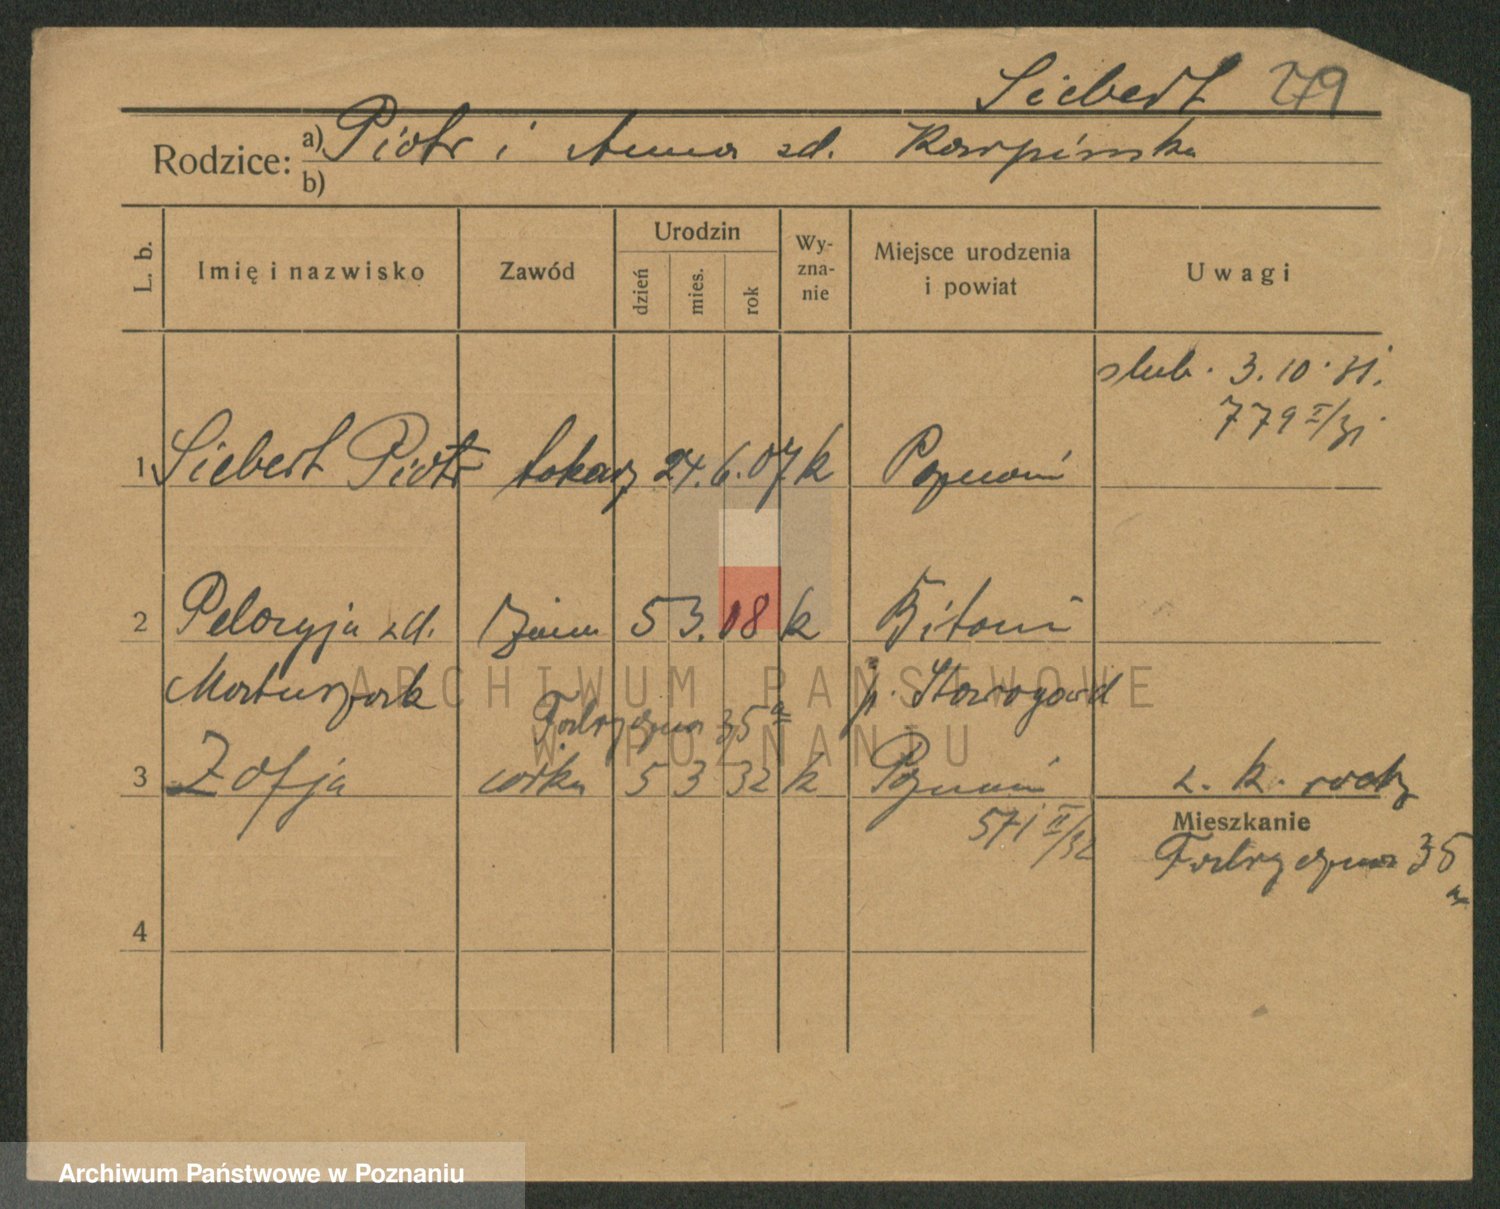 Siebert 279
Rodzice: a) Piotr i Anna zd. Karpińska
b)
L. b. Imię i nazwisko Zawód Urodzin dzień mies. rok Wyznanie Miejsce urodzenia i powiat Uwagi
ślub. 3.10.31.
779 II/31
1 Siebert Piotr tokarz 24. 6. 07. k Poznań
2 Pelagja zd. 5 3. 08 k Bitonia
Maturzak p. Starogard
Fabryczna 35a
3 Zofja córka 5 3 32 k Poznań z. k. rodz
571 II/32 Mieszkanie
Fabryczna 35
a
4
ARCHIWUM PAŃSTWOWE
W POZNANIU
Archiwum Państwowe w Poznaniu